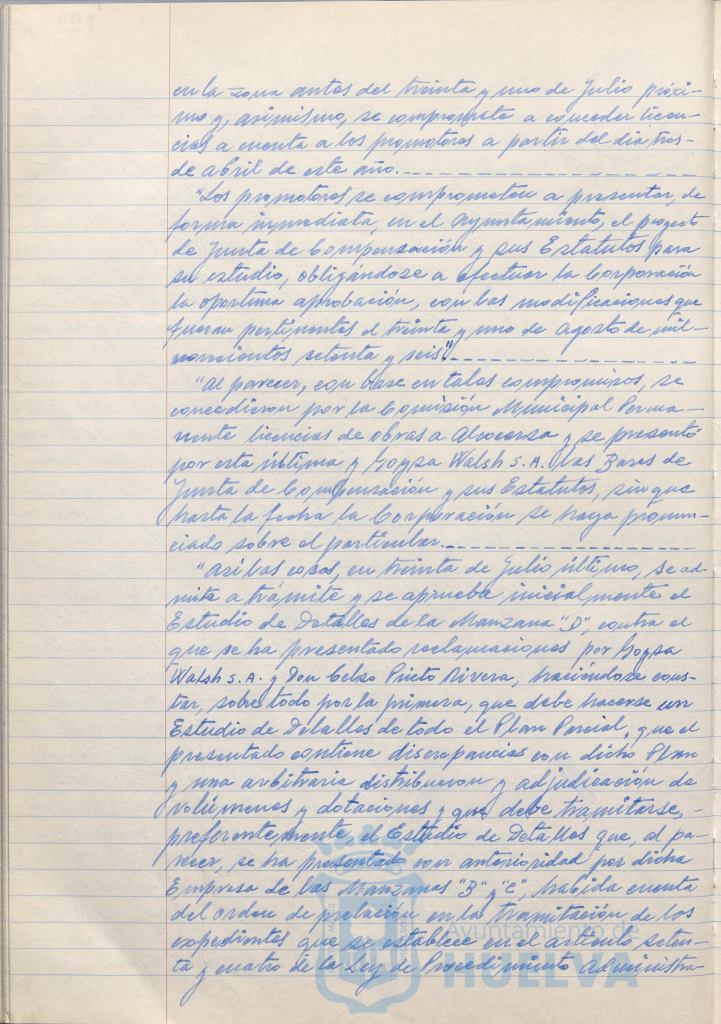 en la zona antes del treinta y uno de Julio próxi-
mo y, asimismo, se compromete a conceder licen-
cias a cuenta a los promotores a partir del dia, tres-
de abril de este año.
"Los promotores se comprometen a presentar, de
forma inmediata, en el Ayuntamiento, el proyecto
de Junta de Compensación y sus Estatutos para
su estudio, obligándose a efectuar la Corporación
la oportuna aprobación, con las modificaciones que
fueran pertinentes el treinta y uno de agosto de mil-
novecientos setenta y seis".
"Al parecer, con base en tales compromisos, se
concedieron por la Comisión Municipal Perma-
nente licencias de obras a Alvocersa y se presentó
por esta última y Goysa Walsh S.A. las Bases de
Junta de Compensación y sus Estatutos, sin que
hasta la fecha la Corporación se haya pronun-
ciado sobre el particular.
"Así las cosas, en treinta de Julio último, se ad-
mite a trámite y se aprueba inicialmente el
Estudio de Detalles de la Manzana "D", contra el
que se ha presentado reclamaciones por Goysa
Walsh S.A. y Don Celso Prieto Rivera, haciéndose cons-
tar, sobre todo por la primera, que debe hacerse un
Estudio de Detalles de todo el Plan Parcial, que el
presentado contiene discrepancias con dicho Plan
y una arbitraria distribucion y adjudicación de
volúmenes y dotaciones y que debe tramitarse,-
preferentemente, el Estudio de Detalles que, al pa-
recer, se ha presentado con anterioridad por dicha
Empresa de las Manzanas "B" y "C", habida cuenta
del orden de prelación en la tramitación de los
expedientes que se establece en el artículo seten-
ta y cuatro de la Ley de Procedimiento Administra-
Ayuntamiento de
HUELVA